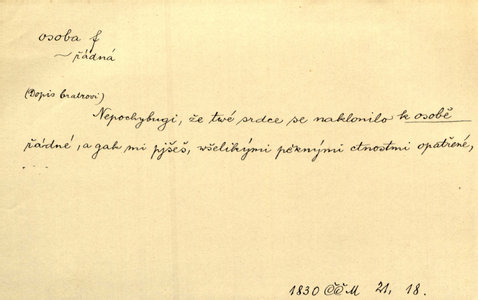 osoba f
~ řádná
(Dopis bratrovi)
Nepochybugi, že twé srdce se naklonilo k osobě
řádné, a gak mi pjšeš, wšelikými pěknými ctnostmi opatřené,
...
1830 ČČM 21, 18.